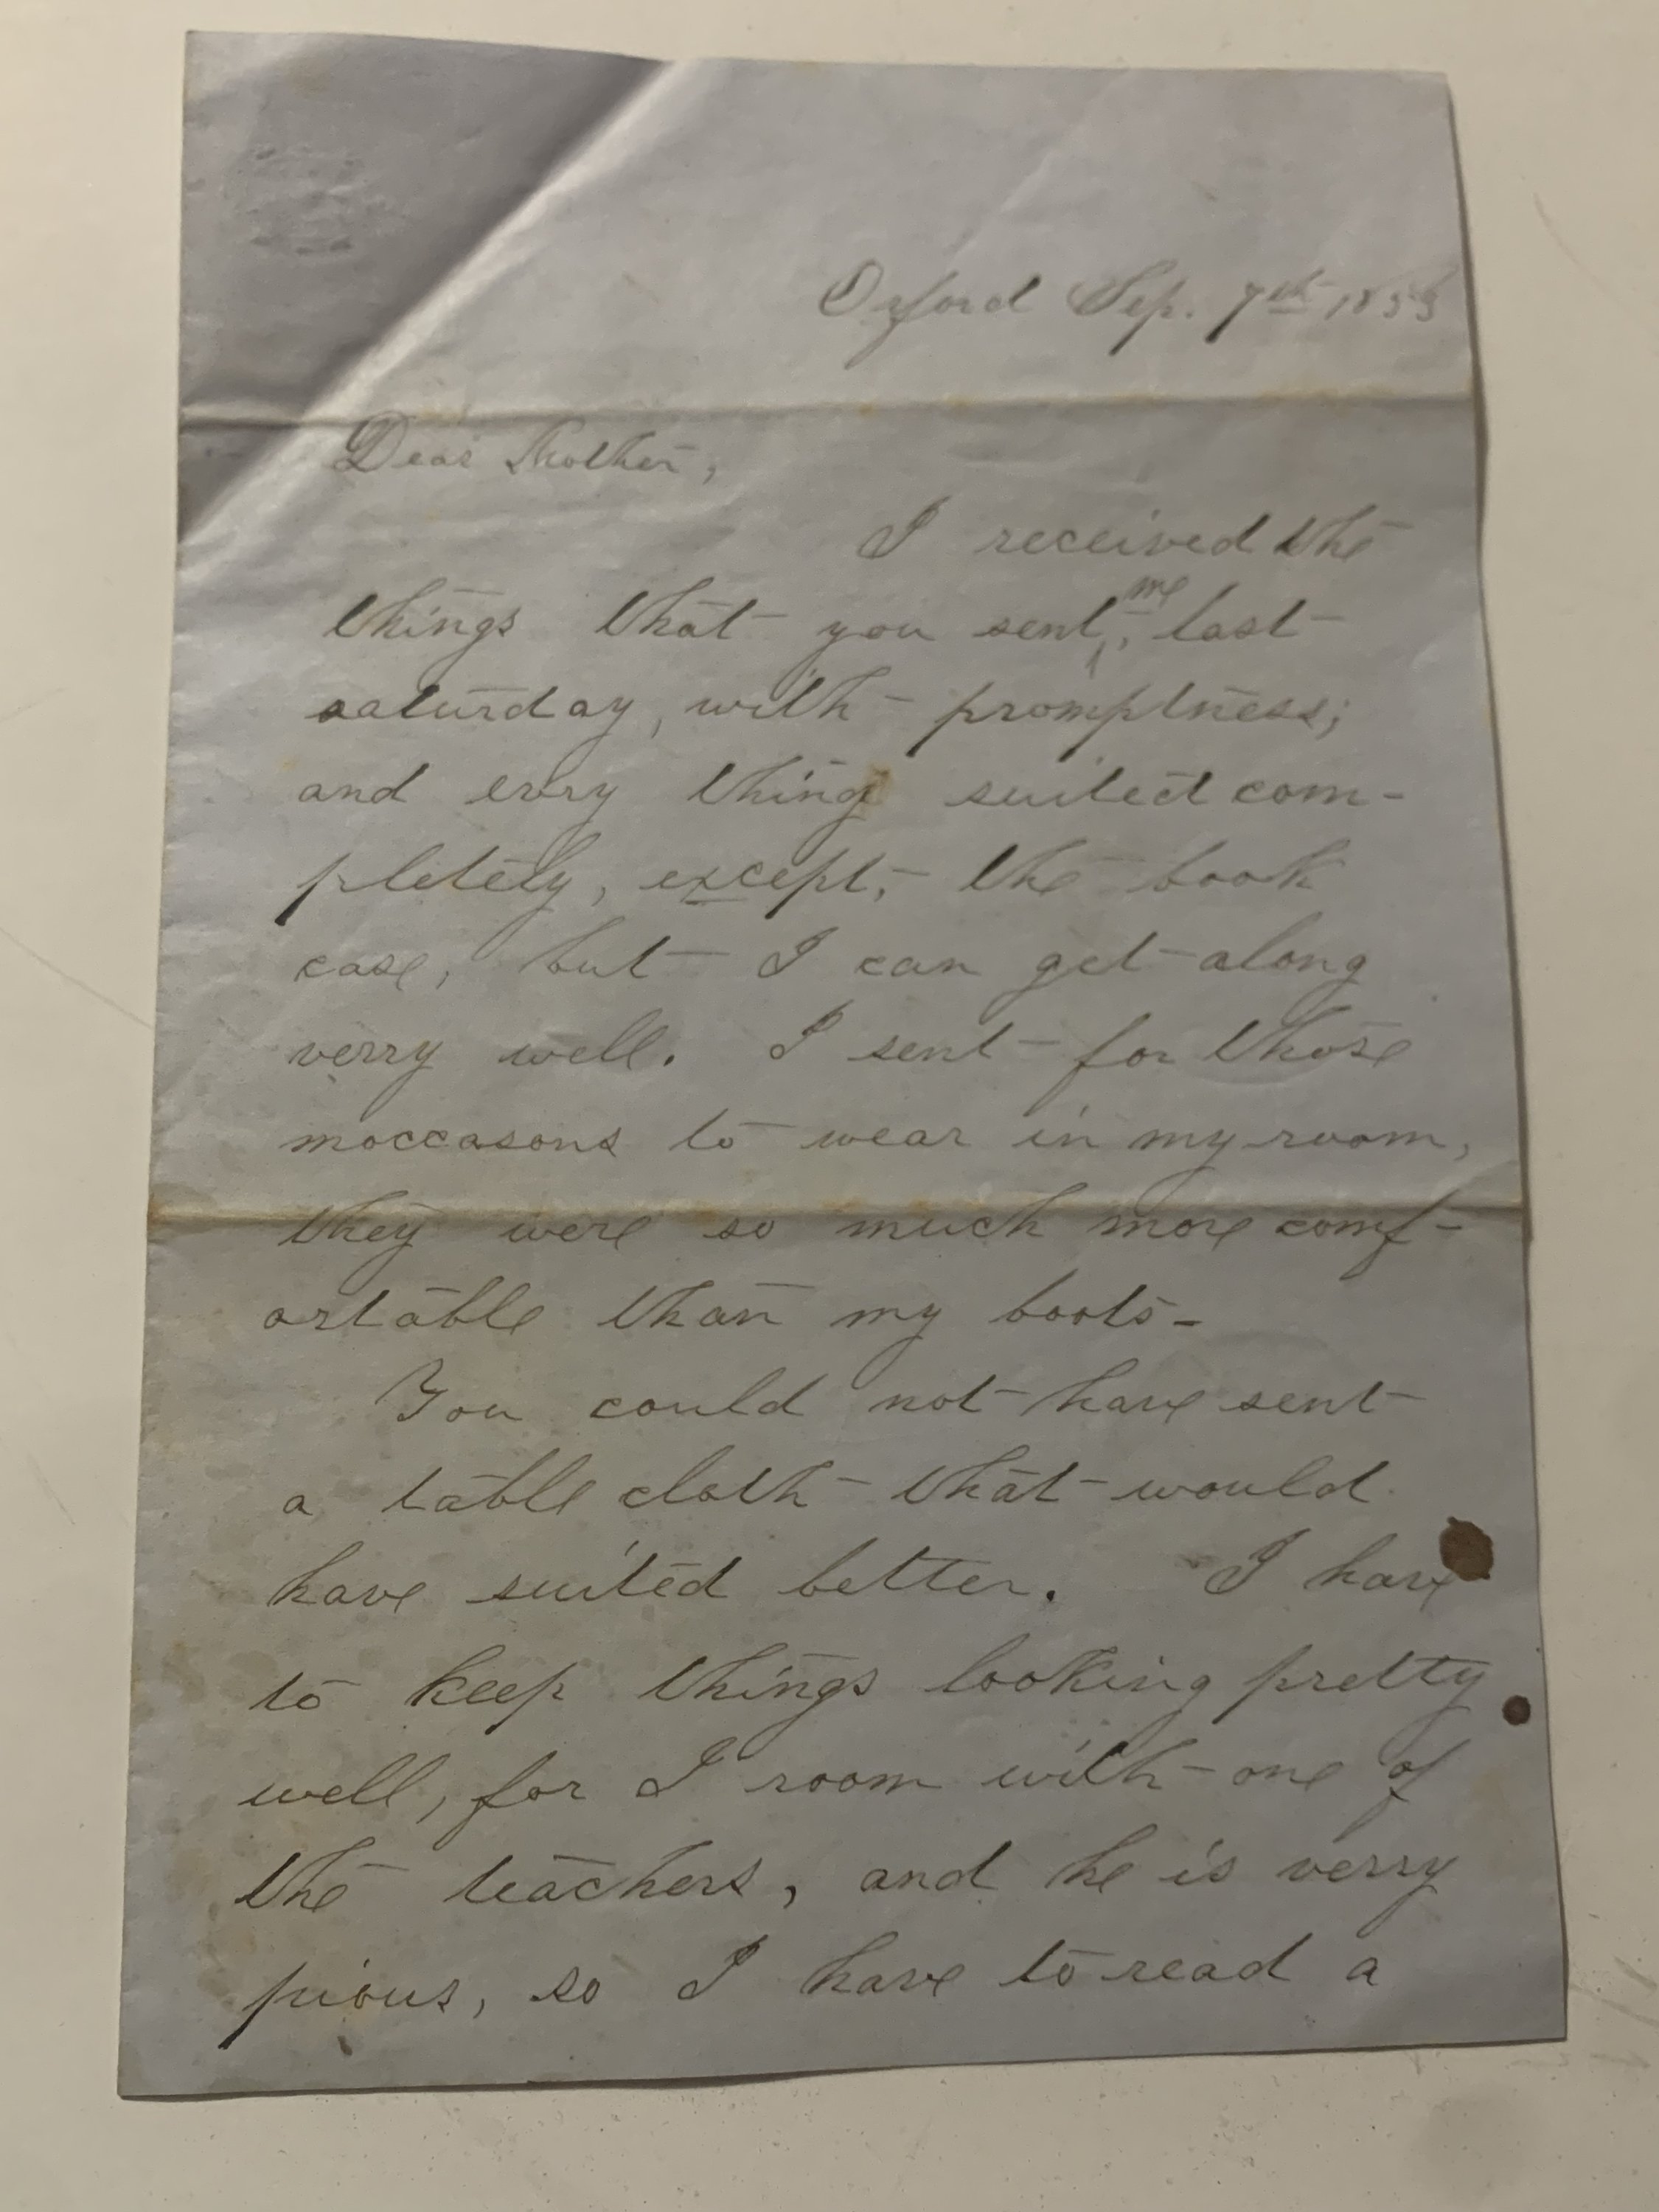 Oxford Sep. 7th 1855
Dear Mother,
I received the
things that you sent me, last
saturday, with promptness;
and evry thing suited com-
pletely, except, the book
case, but I can get along
verry well. I sent for those
moccasons to wear in my room,
they were so much more comf-
ortable than my boots-
You could not have sent
a table cloth that would
have suited better. I have
to keep things looking pretty
well, for I room with one of
the teachers, and he is verry
pious, so I have to read a